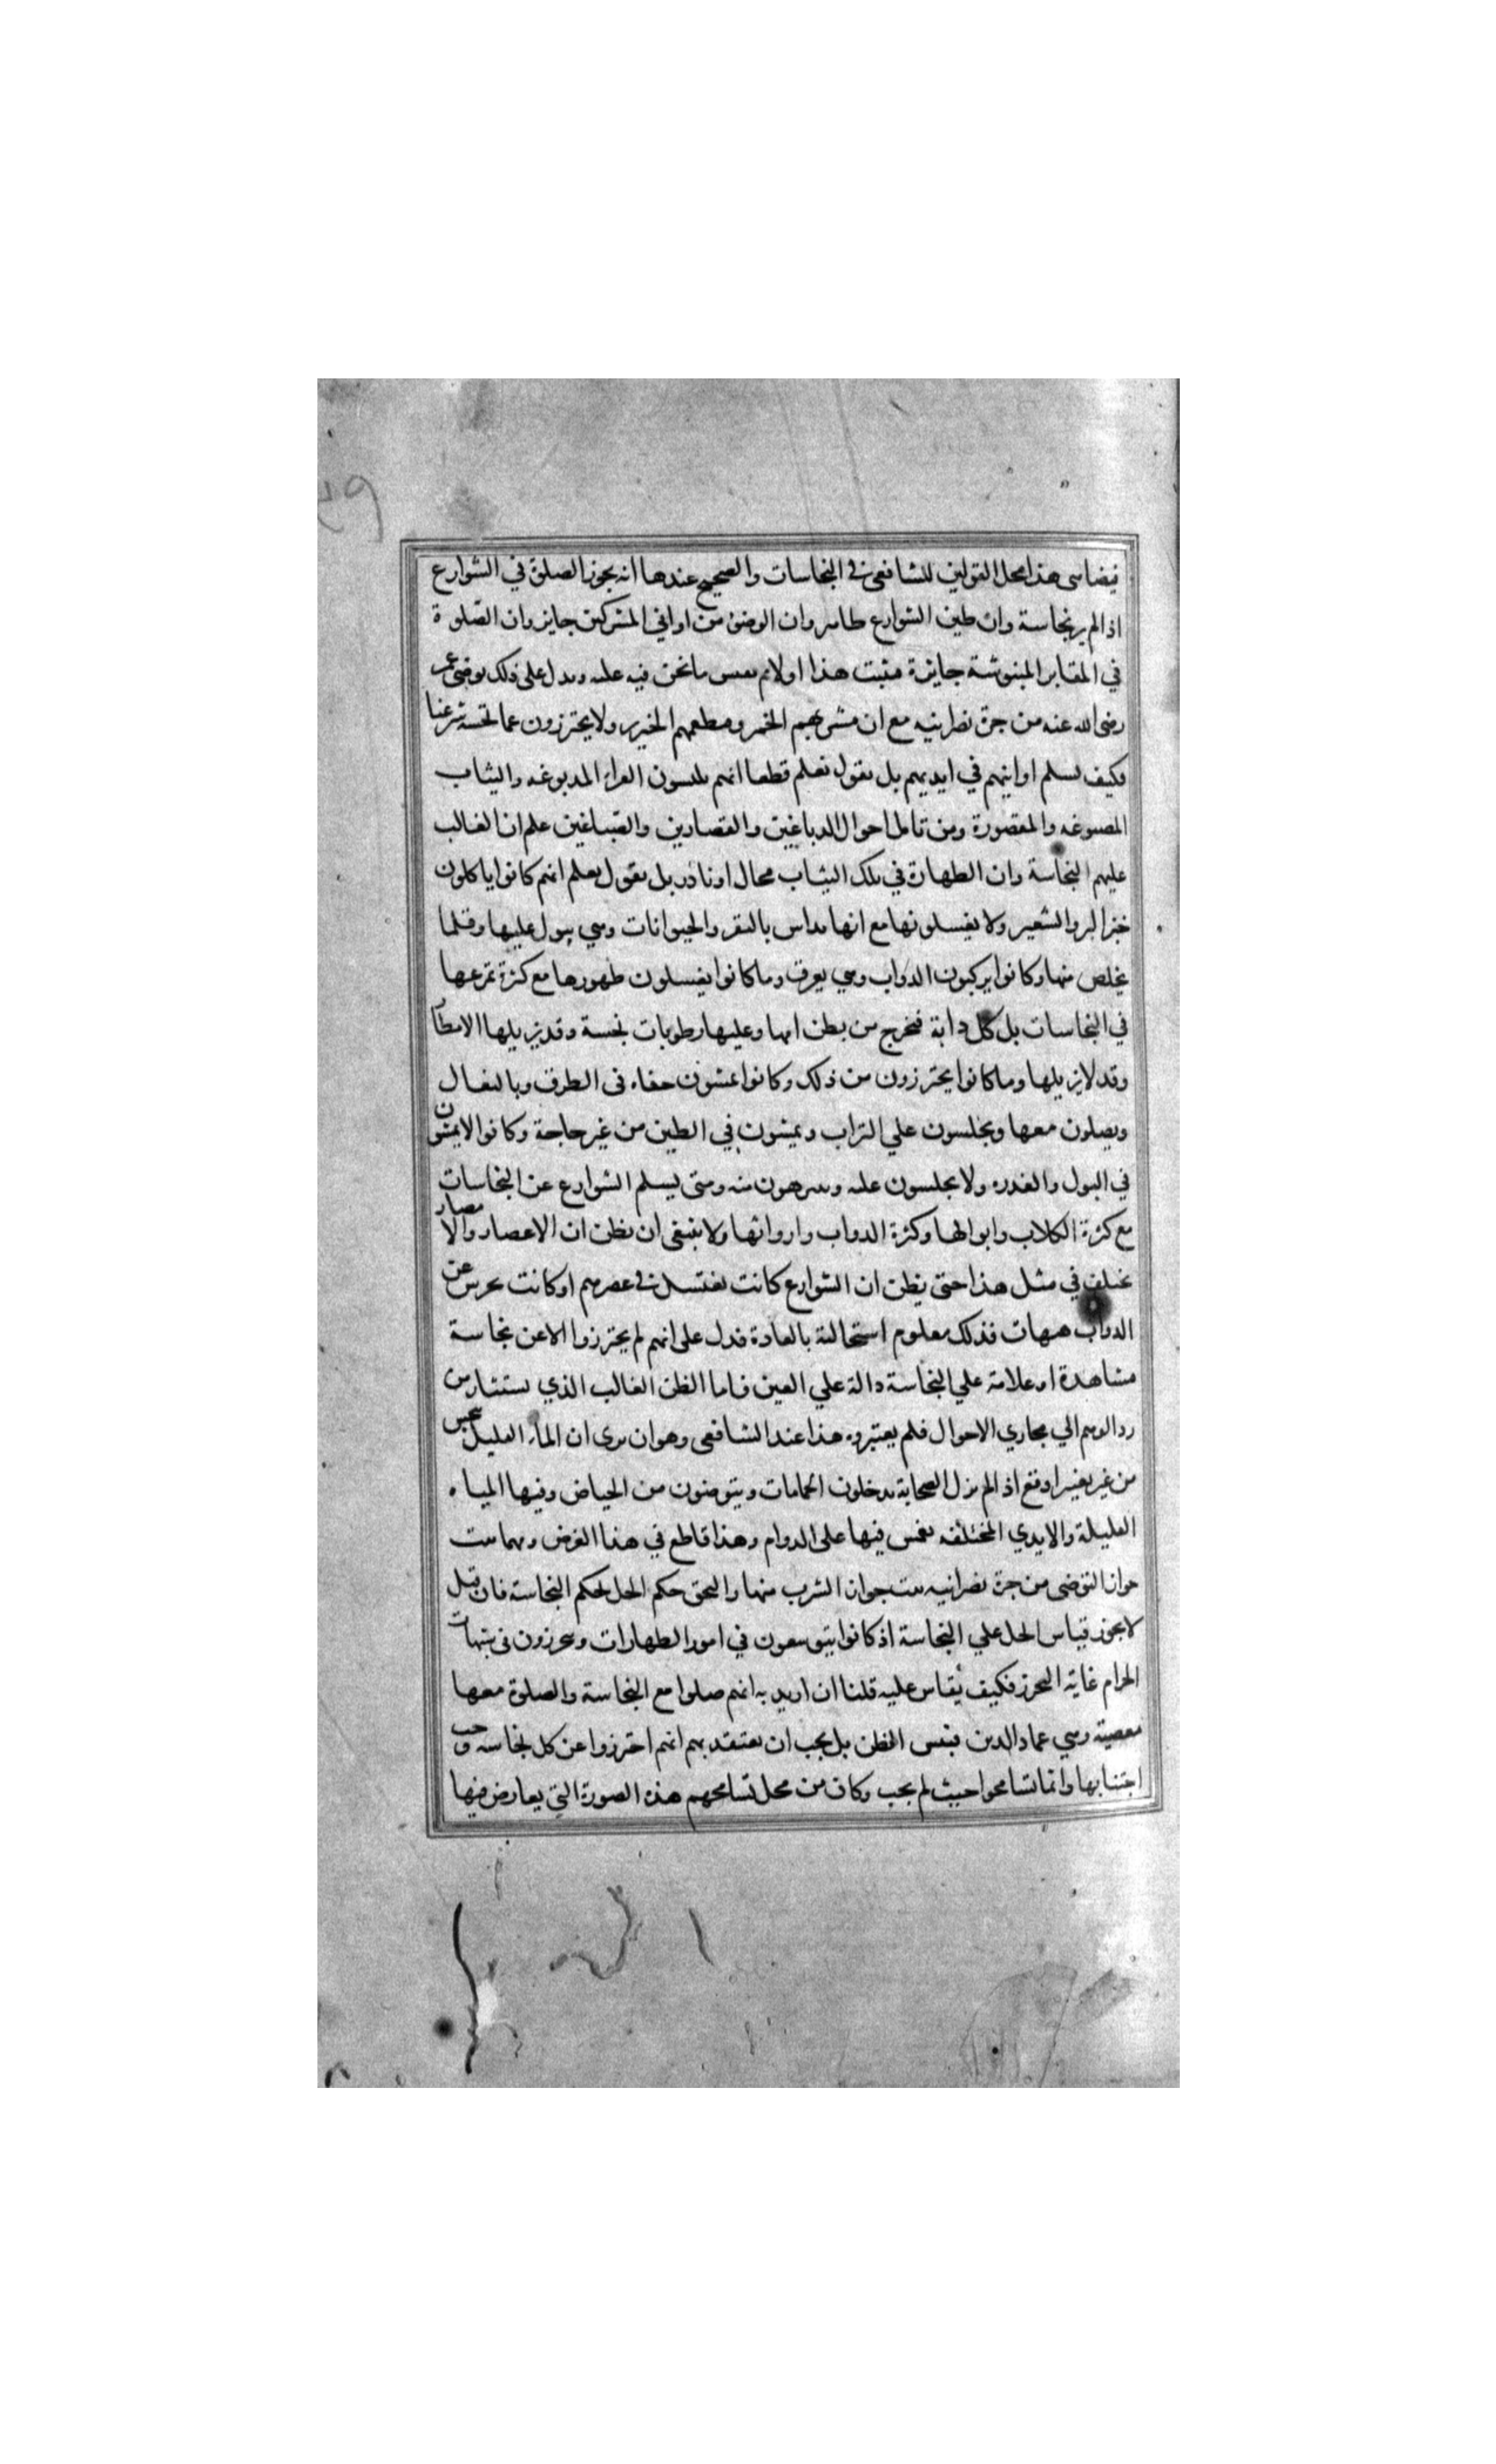 فيضاهى هذا محل القولين للشافعى فى النجاسات والصحيح عندها انه يجوز الصلوة في الشوارع
اذ الم ير نجاسة وان طين الشوارع طاهر وان الوضوء من اواني المشركين جايز وان الصلوة
في المقابر المنبوشة جايزة فثبت هذا اولا ثم نقيس ما نحن فيه عليه ويدل على ذلك توضى عمر
رضى الله عنه من جرة نصرانيه مع ان مشربهم الخمر ومطعمهم الخنزير ولا يحترزون عما نجسه شرعنا
فكيف تسلم اوانيهم في ايديهم بل نقول نعلم قطعا انهم يلبسون الفراء المدبوغه والثياب
المصبوغه والمقصورة ومن تامل احوال الدباغين والقصارين والصباغين علم ان الغالب
عليهم النجاسة وان الطهارة في تلك الثياب محال او نادر بل نقول نعلم انهم كانوا ياكلون
خبز البر والشعير ولا يغسلونها مع انها تداس بالبقر والحيوانات وهي تبول عليها وقلما
يخلص منها وكانوا يركبون الدواب وهي يعرق وما كانوا يغسلون ظهورها مع كثرة تمرغها
في النجاسات بل كل دابة فتخرج من بطن امها وعليها رطوبات نجسة وقد يزيلها الامطار
وقد لا يزيلها وما كانوا يحترزون من ذلك وكانوا يمشون حفاه فى الطرق وبالنعال
ويصلون معها ويجلسون علي التراب ويمشون في الطين من غير حاجة وكانوا لا يمشون
في البول والعذره ولا يجلسون عليه ويتنزهون منه ومتى يسلم الشوارع عن النجاسات
مع كثرة الكلاب وابوالها وكثرة الدواب وارواثها ولا ينبغى ان نظن ان الاعصار والامصار
يختلف في مثل هذا حتى يظن ان الشوارع كانت تغتسل فى عصرهم او كانت تحرس عن
الدواب هيهات فذلك معلوم استحالته بالعادة فدل على انهم لم يحترزوا الا عن نجاسة
مشاهدة او علامة علي النجاسة دالة علي العين فاما الظن الغالب الذي يستثار من
رد الوهم الي مجاري الاحوال فلم يعتبروه هذا عند الشافعى وهو ان يرى ان الماء القليل ينجس
من غير تغير اوقع اذ الم يزل الصحابة يدخلون الحمامات ويتوضون من الحياض وفيها المياه
القليلة والايدي المختلفه تغمس فيها على الدوام وهذا قاطع في هذا الغرض ومهما ثبت
جواز التوضى من جرة نصرانيه ثبت جواز الشرب منها والتحق حكم الحل لحكم النجاسة فان قيل
لا يجوز قياس الحل علي النجاسة اذ كانوا يتوسعون في امور الطهارات ويحترزون فى شبهات
الحرام غاية التحرز فكيف يقاس عليه قلنا ان اريد به انهم صلوا مع النجاسة والصلوة معها
معصية وهي عماد الدين فبئس الظن بل يجب ان نعتقد بهم انهم احترزوا عن كل نجاسه وجب
اجتنابها وانما تسامحوا حيث لم يجب وكان من محل تسامحهم هذه الصورة التي يعارض فيها